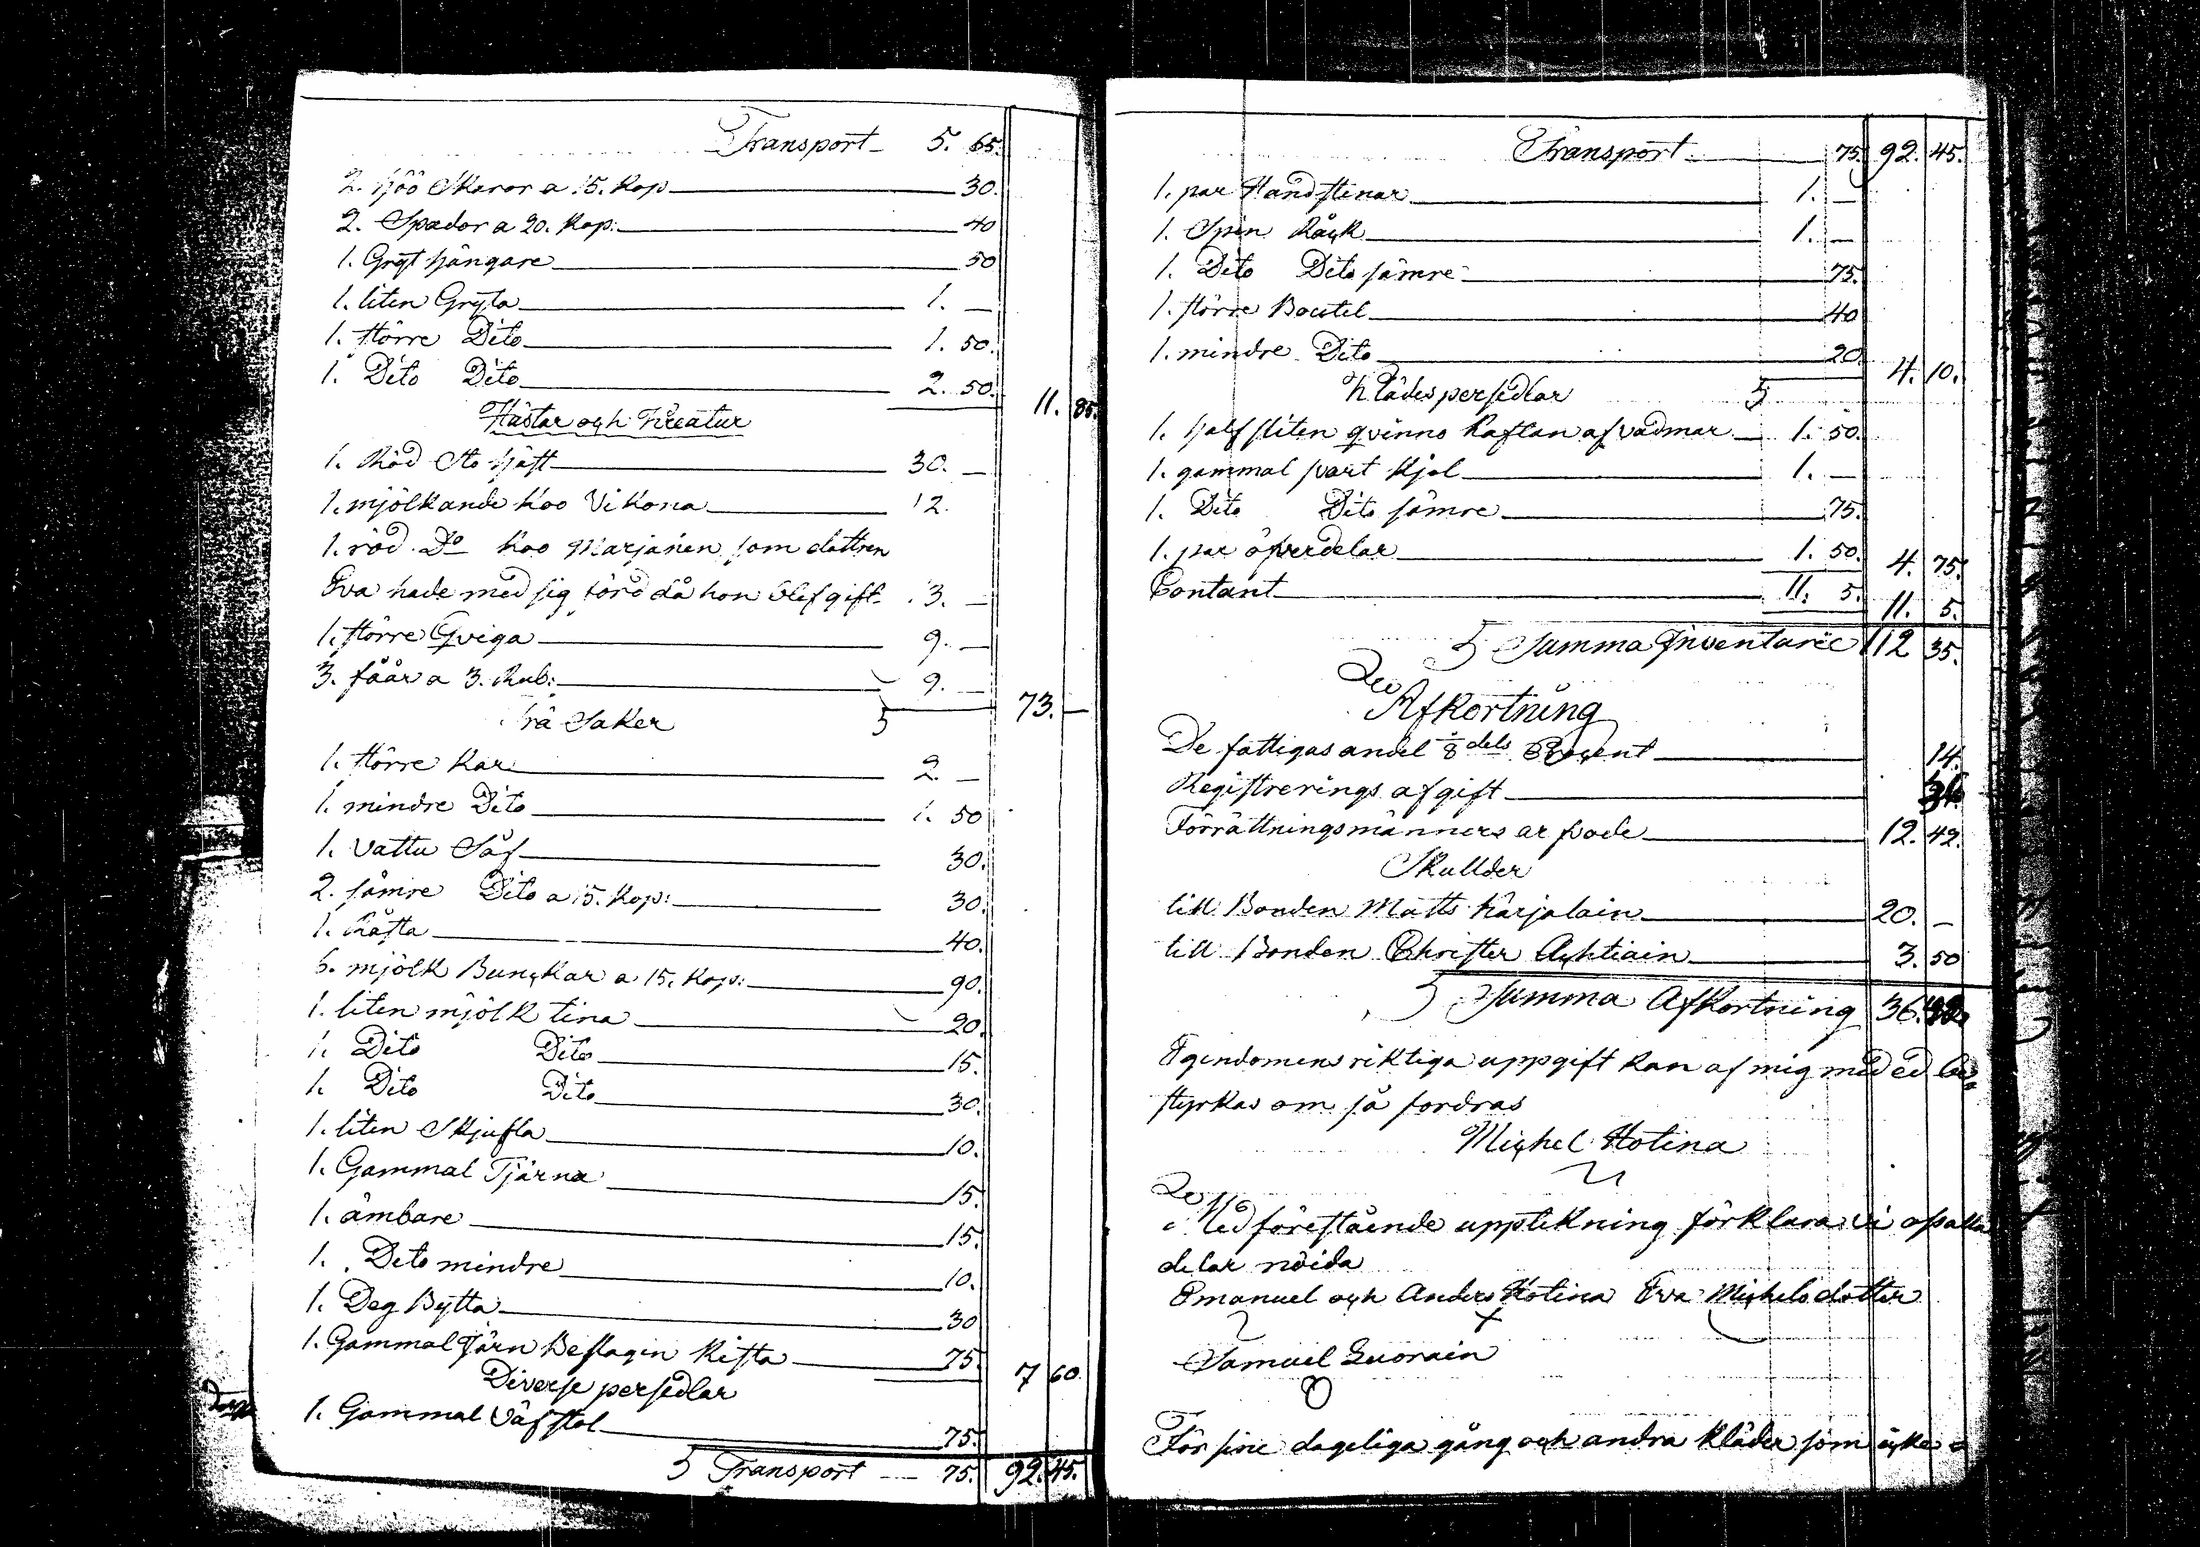 Transport 5. 65.
2. höö Skaror a 15. Kop 30.
2. Spador a 20. Kop: 40
1. Gryt hängare 50
1. liten Gryta 1. —
1. större Dito 1. 50.
1. Dito Dito 2. 50. 11. 85.
Hästar och Kreatur
1. Röd Sto häst 30. —
1. mjölkande Koo Vikona 12.
1. röd Do Koo Marjanen som dottren
Eva hade med sig förd då hon blef gift 13. —
1. större Qviga 9. —
3. fåår a 3. Rub: 9. — 73. —
Trä Saker
1. större Kar 2. —
1. mindre Dito 1. 50
1. Vattu Såf 30.
2. sämre Dito a 15. Kop: 30.
1. 40.
6. mjölk Bunckar a 15. Kop: 90.
1. liten mjölk tina 20.
1. Dito Dito 15.
1. Dito Dito 30.
1. liten Skjufla 10.
1. Gammal Tjärna 15.
1. ämbare 15.
1. Dito mindre 10.
1. Deg Bytta 30
1. Gammal Järn Beslagin Kista 75. 7 60.
Diverse persedlar
1. Gammal Väfstol 75.
Transport 75. 92. 45.
Transport 75. 92. 45.
1. par Handstenar 1. —
1. Spin Råck 1. —
1. Dito Dito sämre 75.
1. större Bocktel 40
1. mindre Dito 20. 4. 10.
Klädes persedlar
1. half sliten qvinno Kaftan af vadmar 1. 50.
1. gammal svart Kjol 1. —
1. Dito Dito sämre 75.
1. par öfverdelar 1. 50. 4. 75.
Contant 11. 5. 11. 5.
Summa Inventarie 112 35.
Afkortning
De fattigas andel 1/8 dels Procent 14.
Registrerings afgift
Förrättningsmänners arfvode 12. 42.
Skullder
till Bonden Matts Karjalain 20. —
till Bonden Christer Achtiain 3. 50
Summa Afkortning 36.
Egendomens riktiga uppgift kan af mig med ed be=
styrkas om så fordras
Michel Hotina
Med förestående uppteckning förklara vi oss alla
delar nöida
Emanuel och Anders Hotina Eva Michelsdotter
Samuel Luorain
För sine dageliga gång och andra kläder som icke